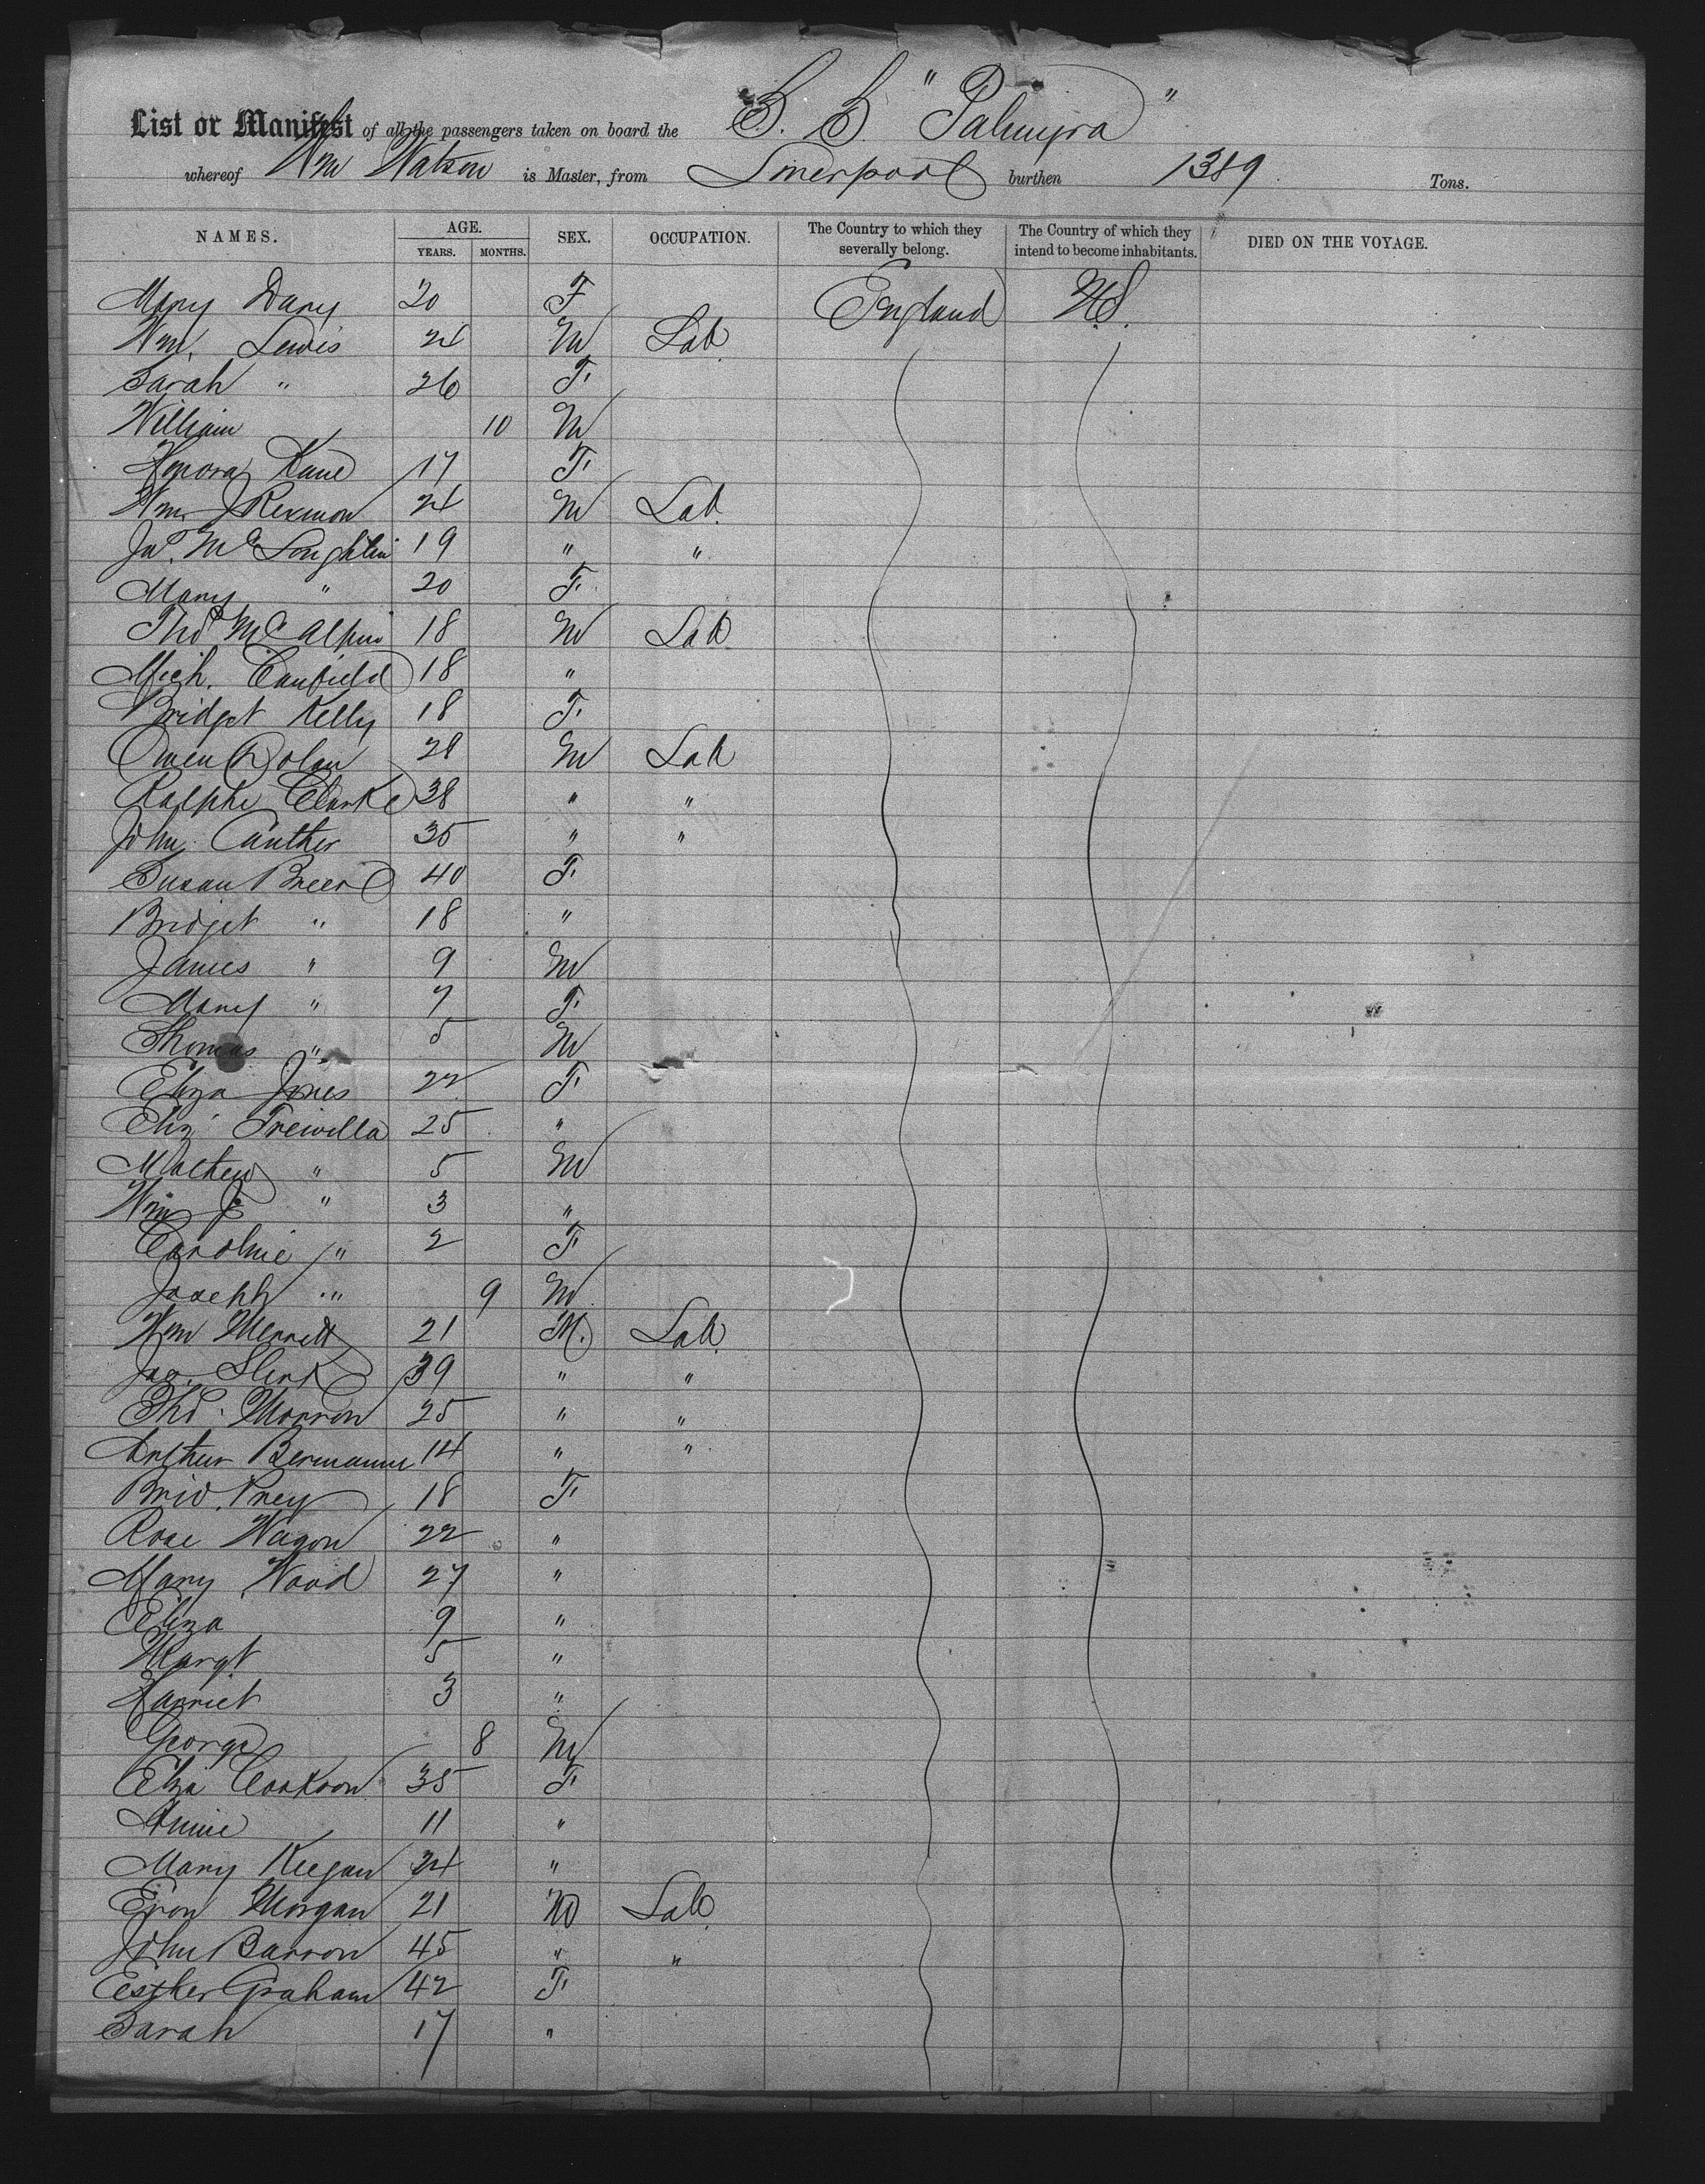 List or Manifest of all the passengers taken on board the S. S. "Palmyra"
whereof Wm Watson is Master, from Liverpool burthen 1389 Tons.
NAMES. AGE. SEX. OCCUPATION. The Country to which they severally belong. The Country of which they intend to become inhabitants. DIED ON THE VOYAGE.
YEARS. MONTHS.
Mary Dany 20 F England U.S.
Wm. Lewis 24 M Lab
Sarah " 26 F
William 10 M
Honora Kane 17 F
Wm J 24 M Lab
Jas. McLoughlin 19 " "
Mary " 20 F
Thos McAlpin 18 M Lab
Mich. Canfield 18 "
Bridget Kelly 18 F
Owen Dolan 28 M Lab
Ralph Clarke 38 " "
John Cauther 35 " "
Susan Breen 40 F
Bridget " 18 "
James " 9 M
Mary " 7 F
Thomas " 5 M
Eliza Jones 22 F
Eliz Trewella 25 "
Mathew " 5 M
Wm J " 3 "
Caroline " 2 F
Joseph " 9 M
Wm Merrett 21 M. Lab
Jas. 39 " "
Thos. Morron 25 " "
Arthur Bermanne 14 " "
Brid. Prey 18 F
Rose Wagon 22 "
Mary Wood 27 "
Eliza 9 "
Margt. 5 "
Harriet 3 "
George 8 M
Eliza Cookson 35 F
Annie 11 "
Mary Keegan 24 "
Evon Morgan 21 M Lab
John Barron 45 " "
Esther Graham 42 F
Sarah 17 "